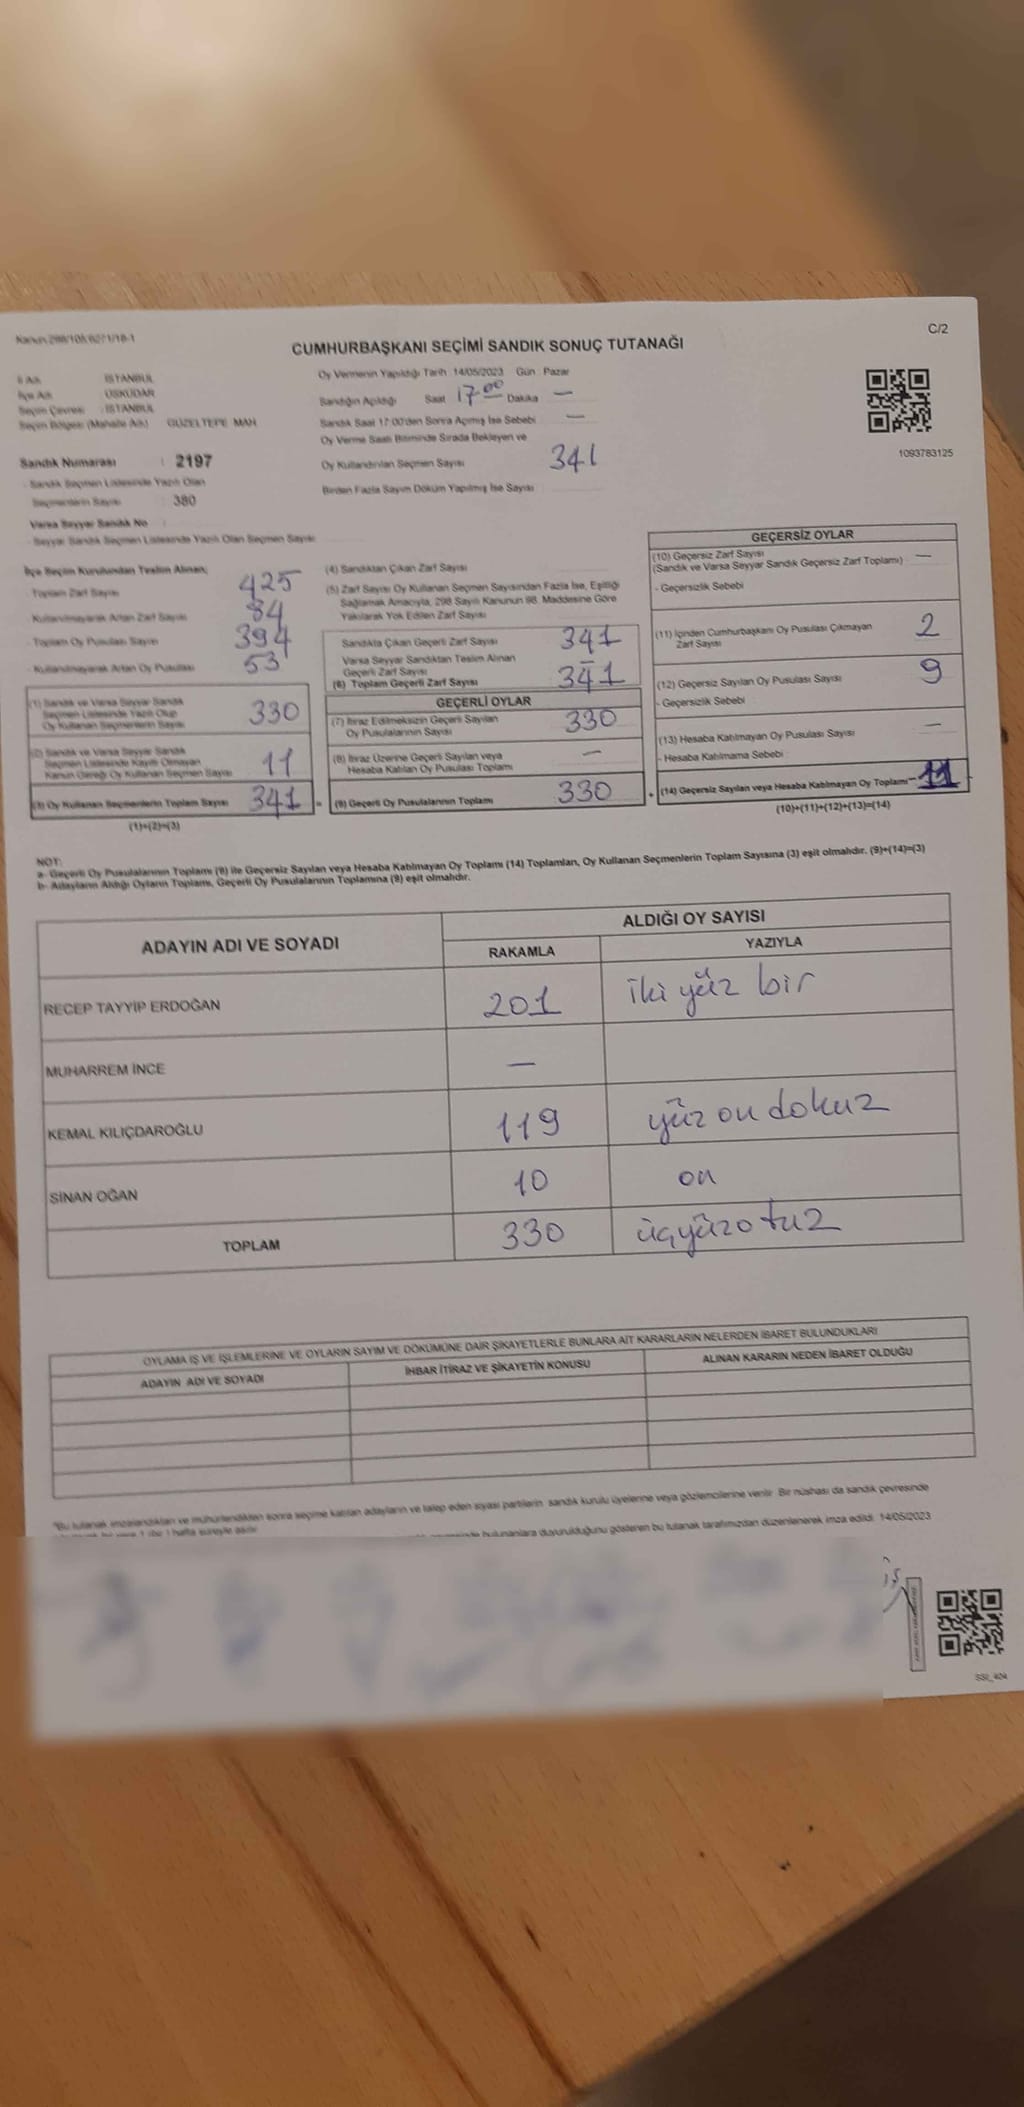 Kanun:298/105,6271/18-1
C/2
CUMHURBAŞKANI SEÇİMİ SANDIK SONUÇ TUTANAĞI
İl Adı : İSTANBUL
İlçe Adı : ÜSKÜDAR
Seçim Çevresi : İSTANBUL
Seçim Bölgesi (Mahalle Adı) : GÜZELTEPE MAH
Sandık Numarası : 2197
- Sandık Seçmen Listesinde Yazılı Olan
Seçmenlerin Sayısı : 380
Varsa Seyyar Sandık No :
- Seyyar Sandık Seçmen Listesinde Yazılı Olan Seçmen Sayısı
Oy Vermenin Yapıldığı Tarih :14/05/2023 Gün : Pazar
Sandığın Açıldığı Saat 17.00 Dakika —
Sandık Saat 17:00'den Sonra Açılmış İse Sebebi —
Oy Verme Saati Bitiminde Sırada Bekleyen ve
Oy Kullandırılan Seçmen Sayısı 341
Birden Fazla Sayım Döküm Yapılmış İse Sayısı
1093783125
İlçe Seçim Kurulundan Teslim Alınan;
- Toplam Zarf Sayısı 425
- Kullanılmayarak Artan Zarf Sayısı 84
- Toplam Oy Pusulası Sayısı 394
- Kullanılmayarak Artan Oy Pusulası 53
(1) Sandık ve Varsa Seyyar Sandık
Seçmen Listesinde Yazılı Olup
Oy Kullanan Seçmenlerin Sayısı 330
(2) Sandık ve Varsa Seyyar Sandık
Seçmen Listesinde Kayıtlı Olmayan
Kanun Gereği Oy Kullanan Seçmen Sayısı 11
(3) Oy Kullanan Seçmenlerin Toplam Sayısı 341 =
(1)+(2)=(3)
(4) Sandıktan Çıkan Zarf Sayısı
(5) Zarf Sayısı Oy Kullanan Seçmen Sayısından Fazla İse, Eşitliği
Sağlamak Amacıyla, 298 Sayılı Kanunun 98. Maddesine Göre
Yakılarak Yok Edilen Zarf Sayısı
Sandıkta Çıkan Geçerli Zarf Sayısı 341
Varsa Seyyar Sandıktan Teslim Alınan
Geçerli Zarf Sayısı —
(6) Toplam Geçerli Zarf Sayısı 341
GEÇERLİ OYLAR
(7) İtiraz Edilmeksizin Geçerli Sayılan
Oy Pusulalarının Sayısı 330
(8) İtiraz Üzerine Geçerli Sayılan veya
Hesaba Katılan Oy Pusulası Toplamı —
(9) Geçerli Oy Pusulalarının Toplamı 330 +
GEÇERSİZ OYLAR
(10) Geçersiz Zarf Sayısı —
(Sandık ve Varsa Seyyar Sandık Geçersiz Zarf Toplamı)
- Geçersizlik Sebebi
(11) İçinden Cumhurbaşkanı Oy Pusulası Çıkmayan
Zarf Sayısı 2
(12) Geçersiz Sayılan Oy Pusulası Sayısı 9
- Geçersizlik Sebebi
(13) Hesaba Katılmayan Oy Pusulası Sayısı —
- Hesaba Katılmama Sebebi
(14) Geçersiz Sayılan veya Hesaba Katılmayan Oy Toplamı 11
(10)+(11)+(12)+(13)=(14)
NOT:
a- Geçerli Oy Pusulalarının Toplamı (9) ile Geçersiz Sayılan veya Hesaba Katılmayan Oy Toplamı (14) Toplamları, Oy Kullanan Seçmenlerin Toplam Sayısına (3) eşit olmalıdır. (9)+(14)=(3)
b- Adayların Aldığı Oyların Toplamı, Geçerli Oy Pusulalarının Toplamına (9) eşit olmalıdır.
ADAYIN ADI VE SOYADI
ALDIĞI OY SAYISI
RAKAMLA YAZIYLA
RECEP TAYYİP ERDOĞAN 201 iki yüz bir
MUHARREM İNCE —
KEMAL KILIÇDAROĞLU 119 yüz on dokuz
SİNAN OĞAN 10 on
TOPLAM 330 üçyüzotuz
OYLAMA İŞ VE İŞLEMLERİNE VE OYLARIN SAYIM VE DÖKÜMÜNE DAİR ŞİKAYETLERLE BUNLARA AİT KARARLARIN NELERDEN İBARET BULUNDUKLARI
ADAYIN ADI VE SOYADI İHBAR İTİRAZ VE ŞİKAYETİN KONUSU ALINAN KARARIN NEDEN İBARET OLDUĞU
"Bu tutanak imzalandıktan ve mühürlendikten sonra seçime katılan adayların ve talep eden siyasi partilerin sandık kurulu üyelerine veya gözlemcilerine verilir. Bir nüshası da sandık çevresinde
bulunanlara duyurulduğunu gösteren bu tutanak tarafımızdan düzenlenerek imza edildi. 14/05/2023
SSI_404